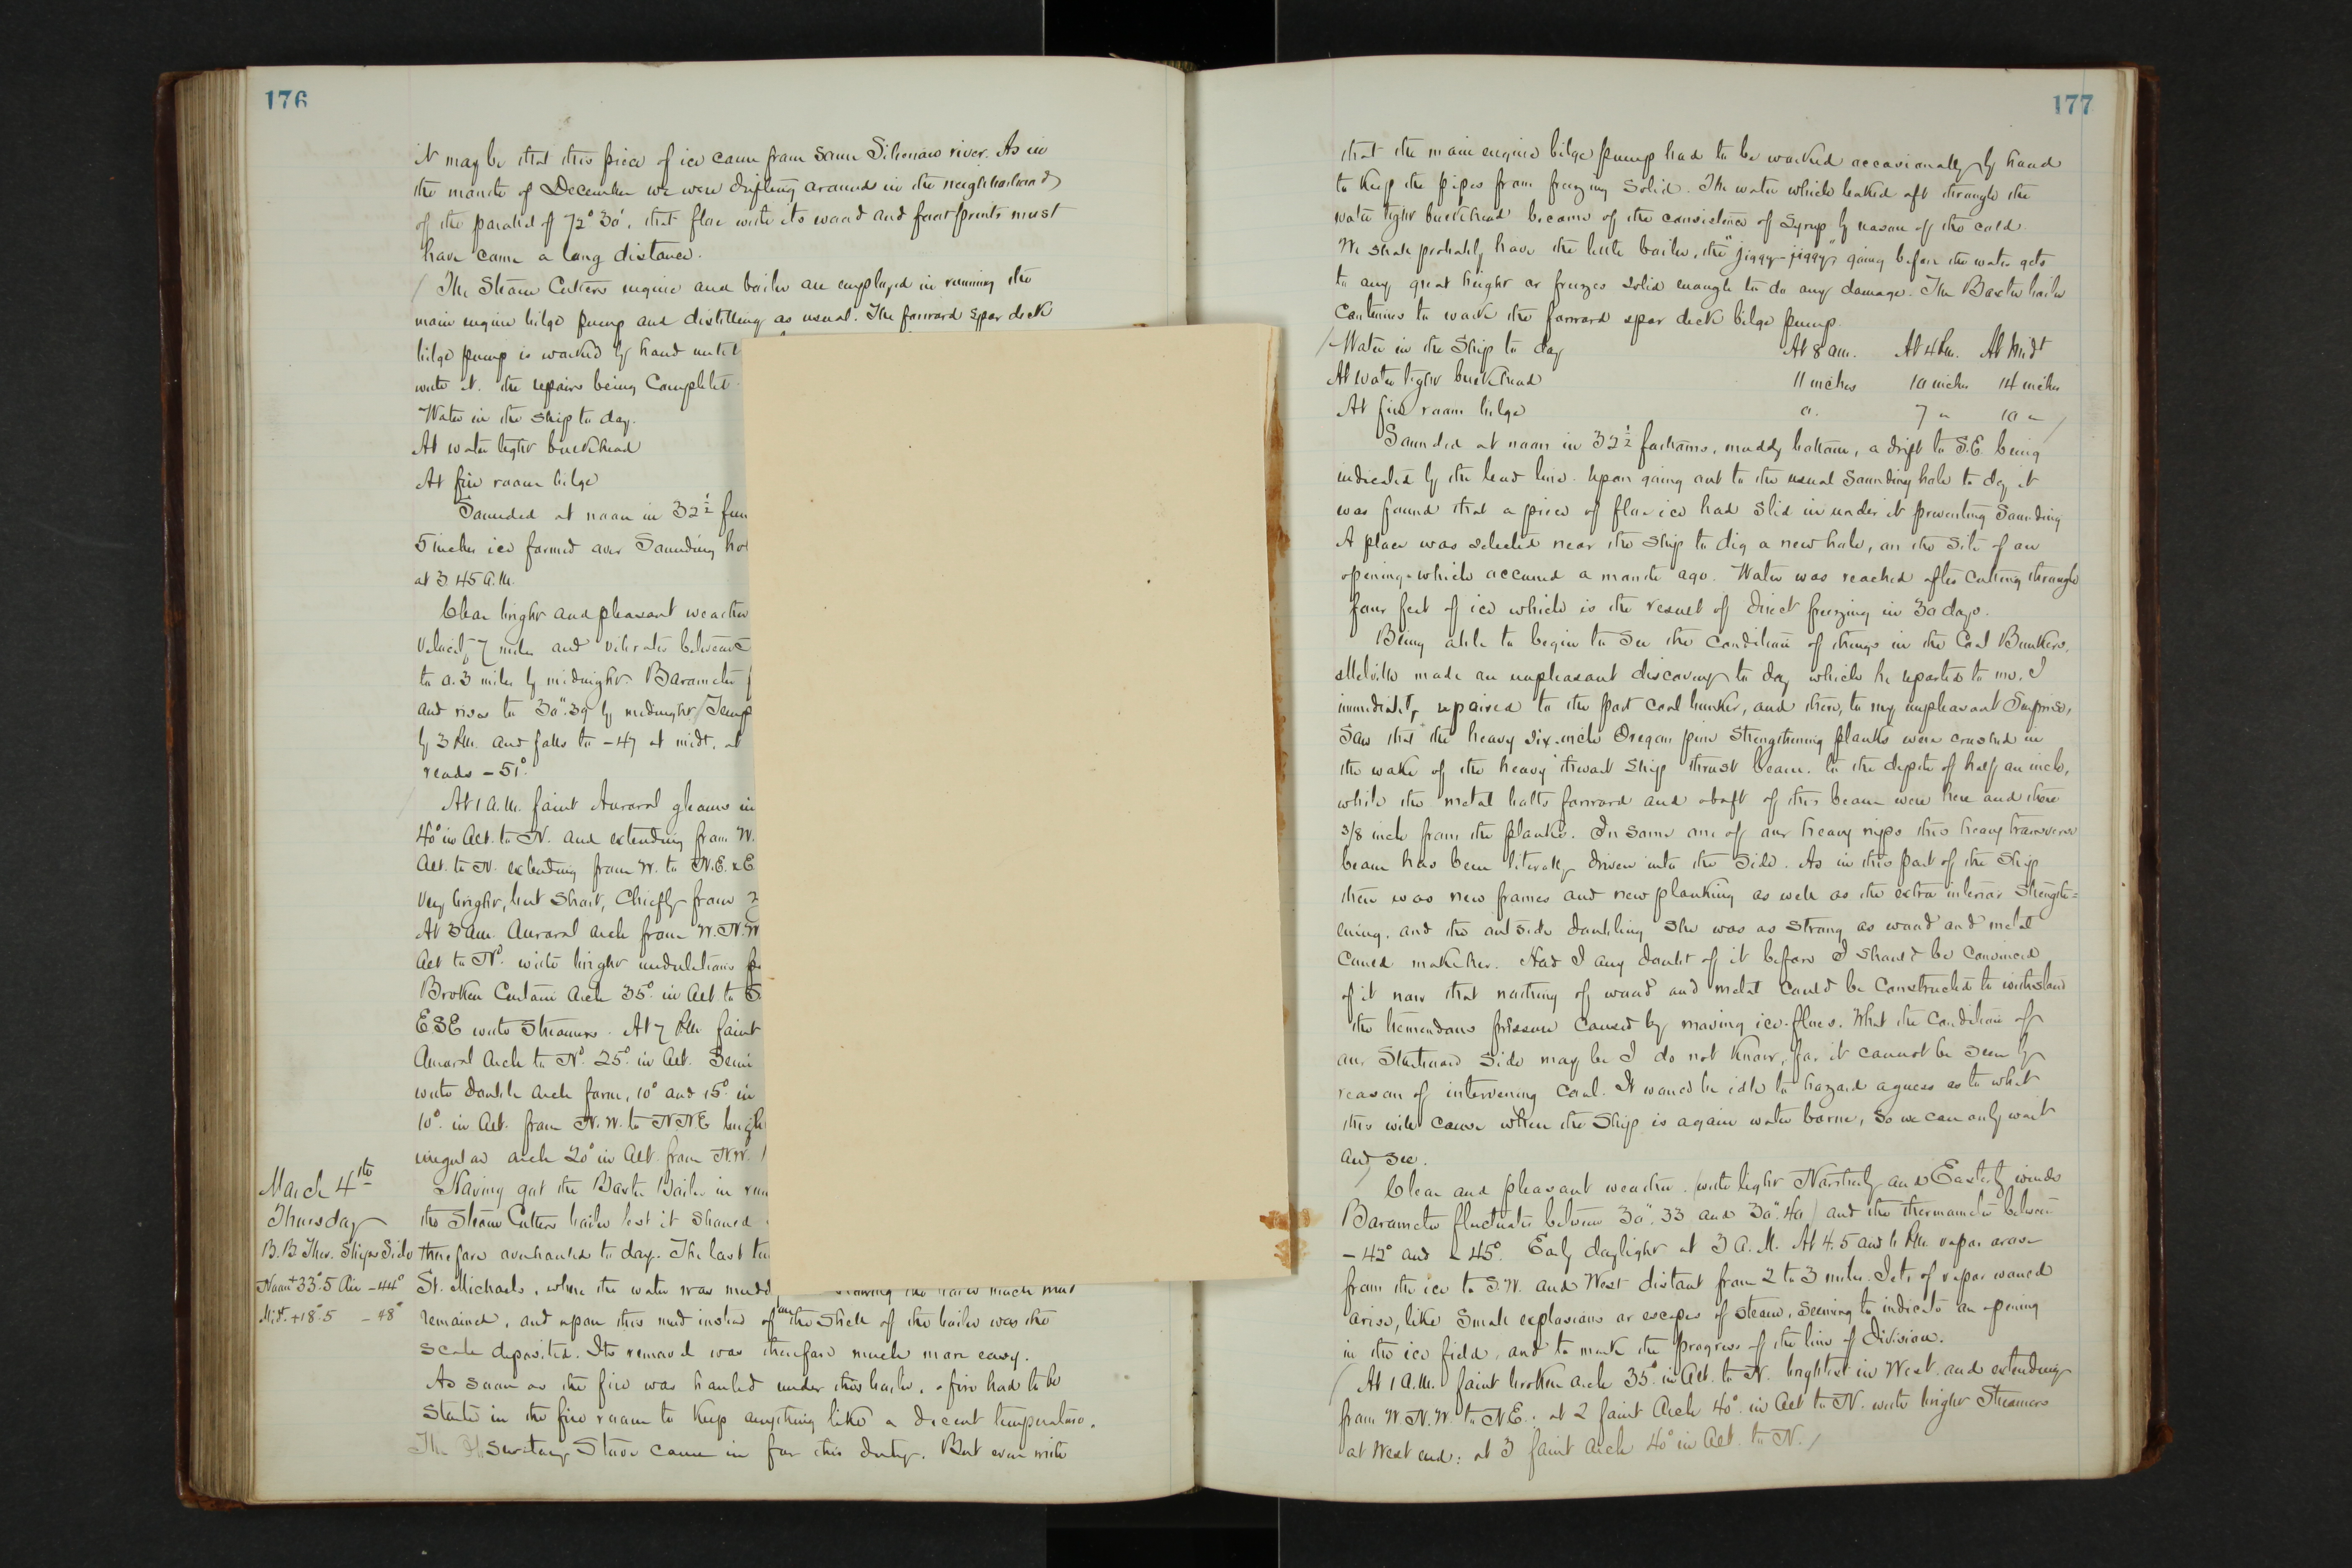 176
it may be that this piece of ice came from some Siberian river. As in
the month of December we were drifting around in the neighborhood
of the parallel of 72° 30', that floe with its wood and foot prints must
have come a long distance.
The Steam Cutters engine and boiler are employed in running the
main engine bilge pump and distilling as usual. The forward spar deck
bilge pump is worked by hand until
with it. the repairs being Complete
Water in the ship to day.
At water tight bulkhead
At fire room bilge
Sounded at noon in 32½
5 inches ice formed over Sounding
at 3 45 A.M.
Clear bright and pleasant weather
Velocity 7 miles and vibrates between
to 0.3 miles by midnight. Barometer
and rises to 30".39 by midnight
by 3 P.M. and falls to -47 at midt. at
reads -51°.
At 1 A.M. faint Auroral gleams in
40° in Alt. to N. and extending from W.
Alt. to N. extending from W. to N.E. x E
Very bright, but Short, Chiefly from
At 3 am. Auroral arch from W.N.W
Alt to Nd. with bright undulations
Broken Curtain Arch 35° in Alt. to
ESE with Streamers. At 7 P.M. faint
Auroral Arch to Nd. 25° in Alt.
with double Arch form, 10° and 15° in
10° in Alt. from N.W. to NNE
irregular arch 20° in Alt. from N.W.
March 4th
Thursday
B.B. Ther. Ships Side
Noon +33°.5 Air -44°
Midt. +18°.5 -48°
Having got the Baxter Boiler in
the Steam Cutters boiler lest it should
therefore overhauled to day. The last
St. Michaels, where the water was
remained, and upon this mud instead of on the shell of the boiler was the
scale deposited. Its removal was therefore much more easy.
As soon as the fire was hauled under this boiler, a fire had to be
started in the fire room to keep anything like a decent temperature.
The Observatory Stove came in for this duty. But even with
177
that the main engine bilge pump had to be worked occasionally by hand
to keep the pipes from freezing solid. The water which leaked aft through the
water tight bulkhead became of the consistence of Syrup by reason of the cold.
We shall probably have the little boiler, the "jiggy-jiggy" going before the water gets
to any great height or freezes solid enough to do any damage. The Baxter boiler
Continues to work the forward spar deck bilge pump.
Water in the Ship to day At 8 am. At 4 Pm. At Midt
At water tight bulkhead 11 inches 10 inches 14 inches
At fire room bilge 0. 7 " 10 "
Sounded at noon in 32½ fathoms, muddy bottom, a drift to S.E. being
indicated by the lead line. Upon going out to the usual Sounding hole to day it
was found that a piece of floe ice had slid in under it preventing Sounding
A place was selected near the Ship to dig a new hole, on the Site of an
opening which occurred a month ago. Water was reached after Cutting through
four feet of ice which is the result of direct freezing in 30 days.
Being able to begin to See the Condition of things in the Coal Bunkers,
Melville made an unpleasant discovery to day which he reported to me. I
immediately repaired to the port coal bunker, and there, to my unpleasant Surprise,
Saw that the heavy six-inch Oregon pine Strengthening planks were crushed in
the wake of the heavy thwart ship thrust beam. to the depth of half an inch,
while the metal bolts forward and abaft of this beam were here and there
3/8 inch from the planks. In some one of our heavy nips this heavy transverse
beam has been literally driven into the Side. As in this part of the Ship
there was new frames and new planking as well as the extra interior Strength=
ening, and the outside doubling She was as Strong as wood and metal
could make her. Had I any doubt of it before I should be Convinced
of it now that nothing of wood and metal could be Constructed to withstand
the tremendous pressure caused by moving ice-floes. What the Condition of
our Starboard Side may be I do not know, for it cannot be seen by
reason of intervening Coal. It would be idle to hazard a guess as to what
this will cause when the Ship is again water borne, So we can only wait
and see.
Clear and pleasant weather. with light Northerly and Easterly winds
Barometer fluctuates between 30".33 and 30".40 and the thermometer between
-42° and -45°. Early daylight at 3 A.M. At 4. 5 and 6 P.M. vapor arose
from the ice to S.W. and West distant from 2 to 3 miles. Jets of vapor would
arise, like Small explosions or escapes of steam, seeming to indicate an opening
in the ice field, and to mark the progress of the line of division.
At 1 A.M. faint broken arch 35° in Alt. to N. brightest in West. and extending
from W.N.W. to N.E. at 2 faint Arch 40° in Alt to N. with bright Streamers
at West end: at 3 faint arch 40° in Alt. to N.